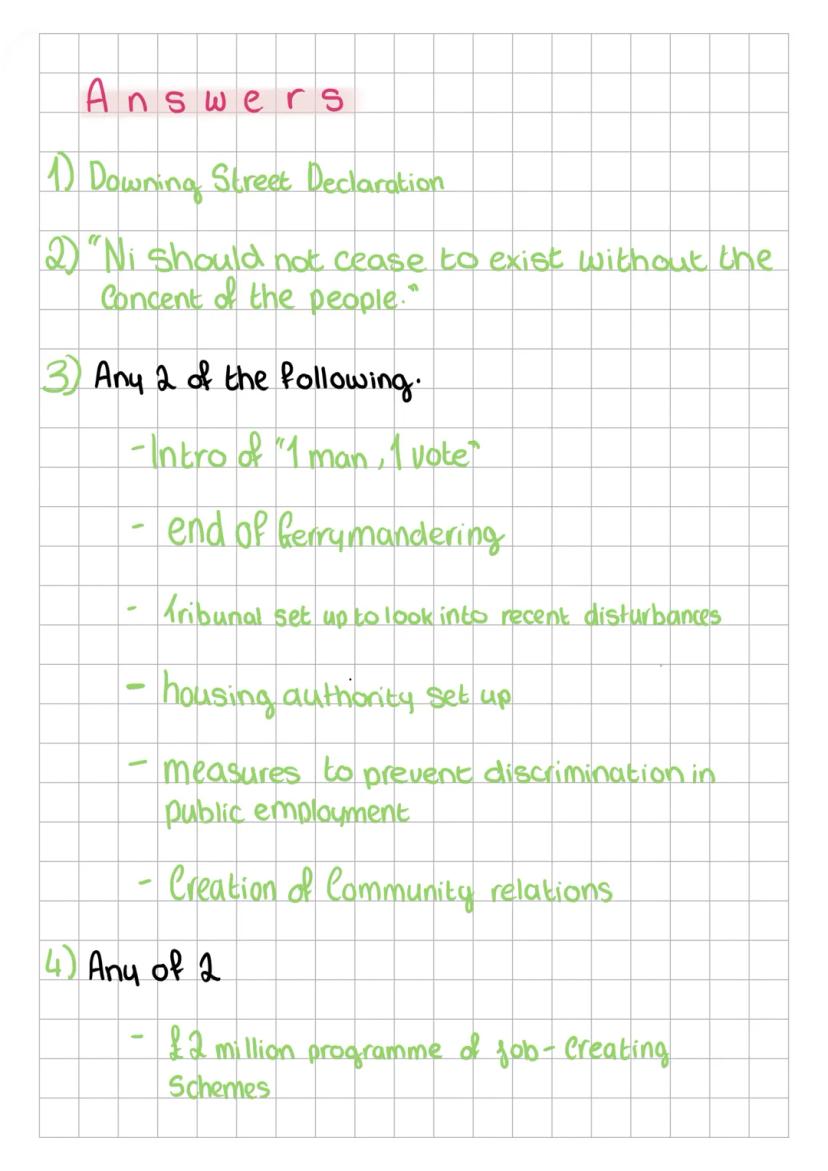 Answers
1) Downing Street Declaration
2) "Ni should not cease to exist without the
Concent of the people."
3) Any 2 of the following.
- Intro of "1 man, 1 vote"
- end of Gerrymandering
- Tribunal set up to look into recent disturbances
- housing authority set up
- measures to prevent discrimination in
public employment
- Creation of Community relations
4) Any of 2
- £2 million programme of job-Creating
Schemes